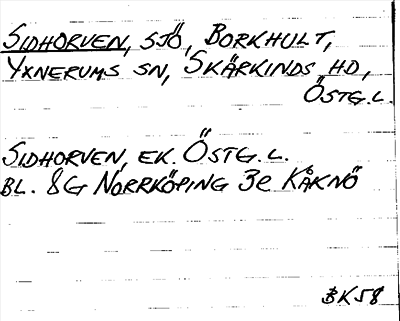 SIDHORVEN, SJÖ, BORKHULT,
YXNERUMS SN, SKÄRKINDS HD,
ÖSTG.L.
SIDHORVEN, EK. ÖSTG.L.
BL. 8G NORRKÖPING 3e KÅKNÖ
BK58